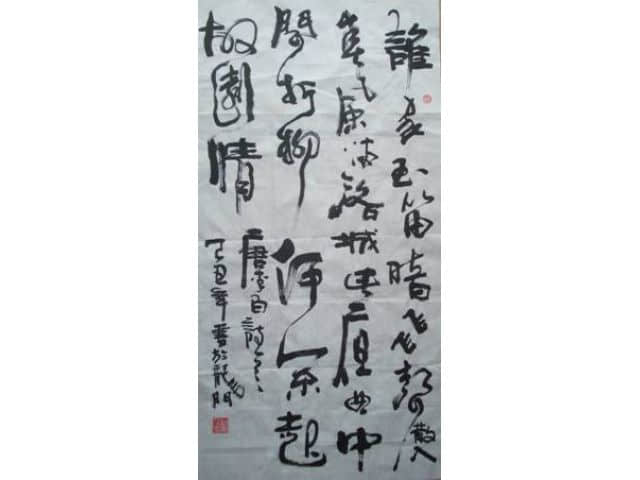 誰家玉笛暗飛聲散入
春風滿洛城此夜曲中
聞折柳何人不起
故園情
唐李白詩
丁丑年書於龍門